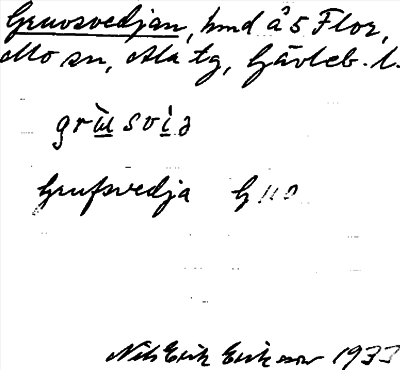 Gruvsvedjan, hmd å 5 Flor,
Mo sn, Ala tg, Gävleb. l.
grùsvìa
Grufsvedja G 110
Nils Erik Eriksson 1933